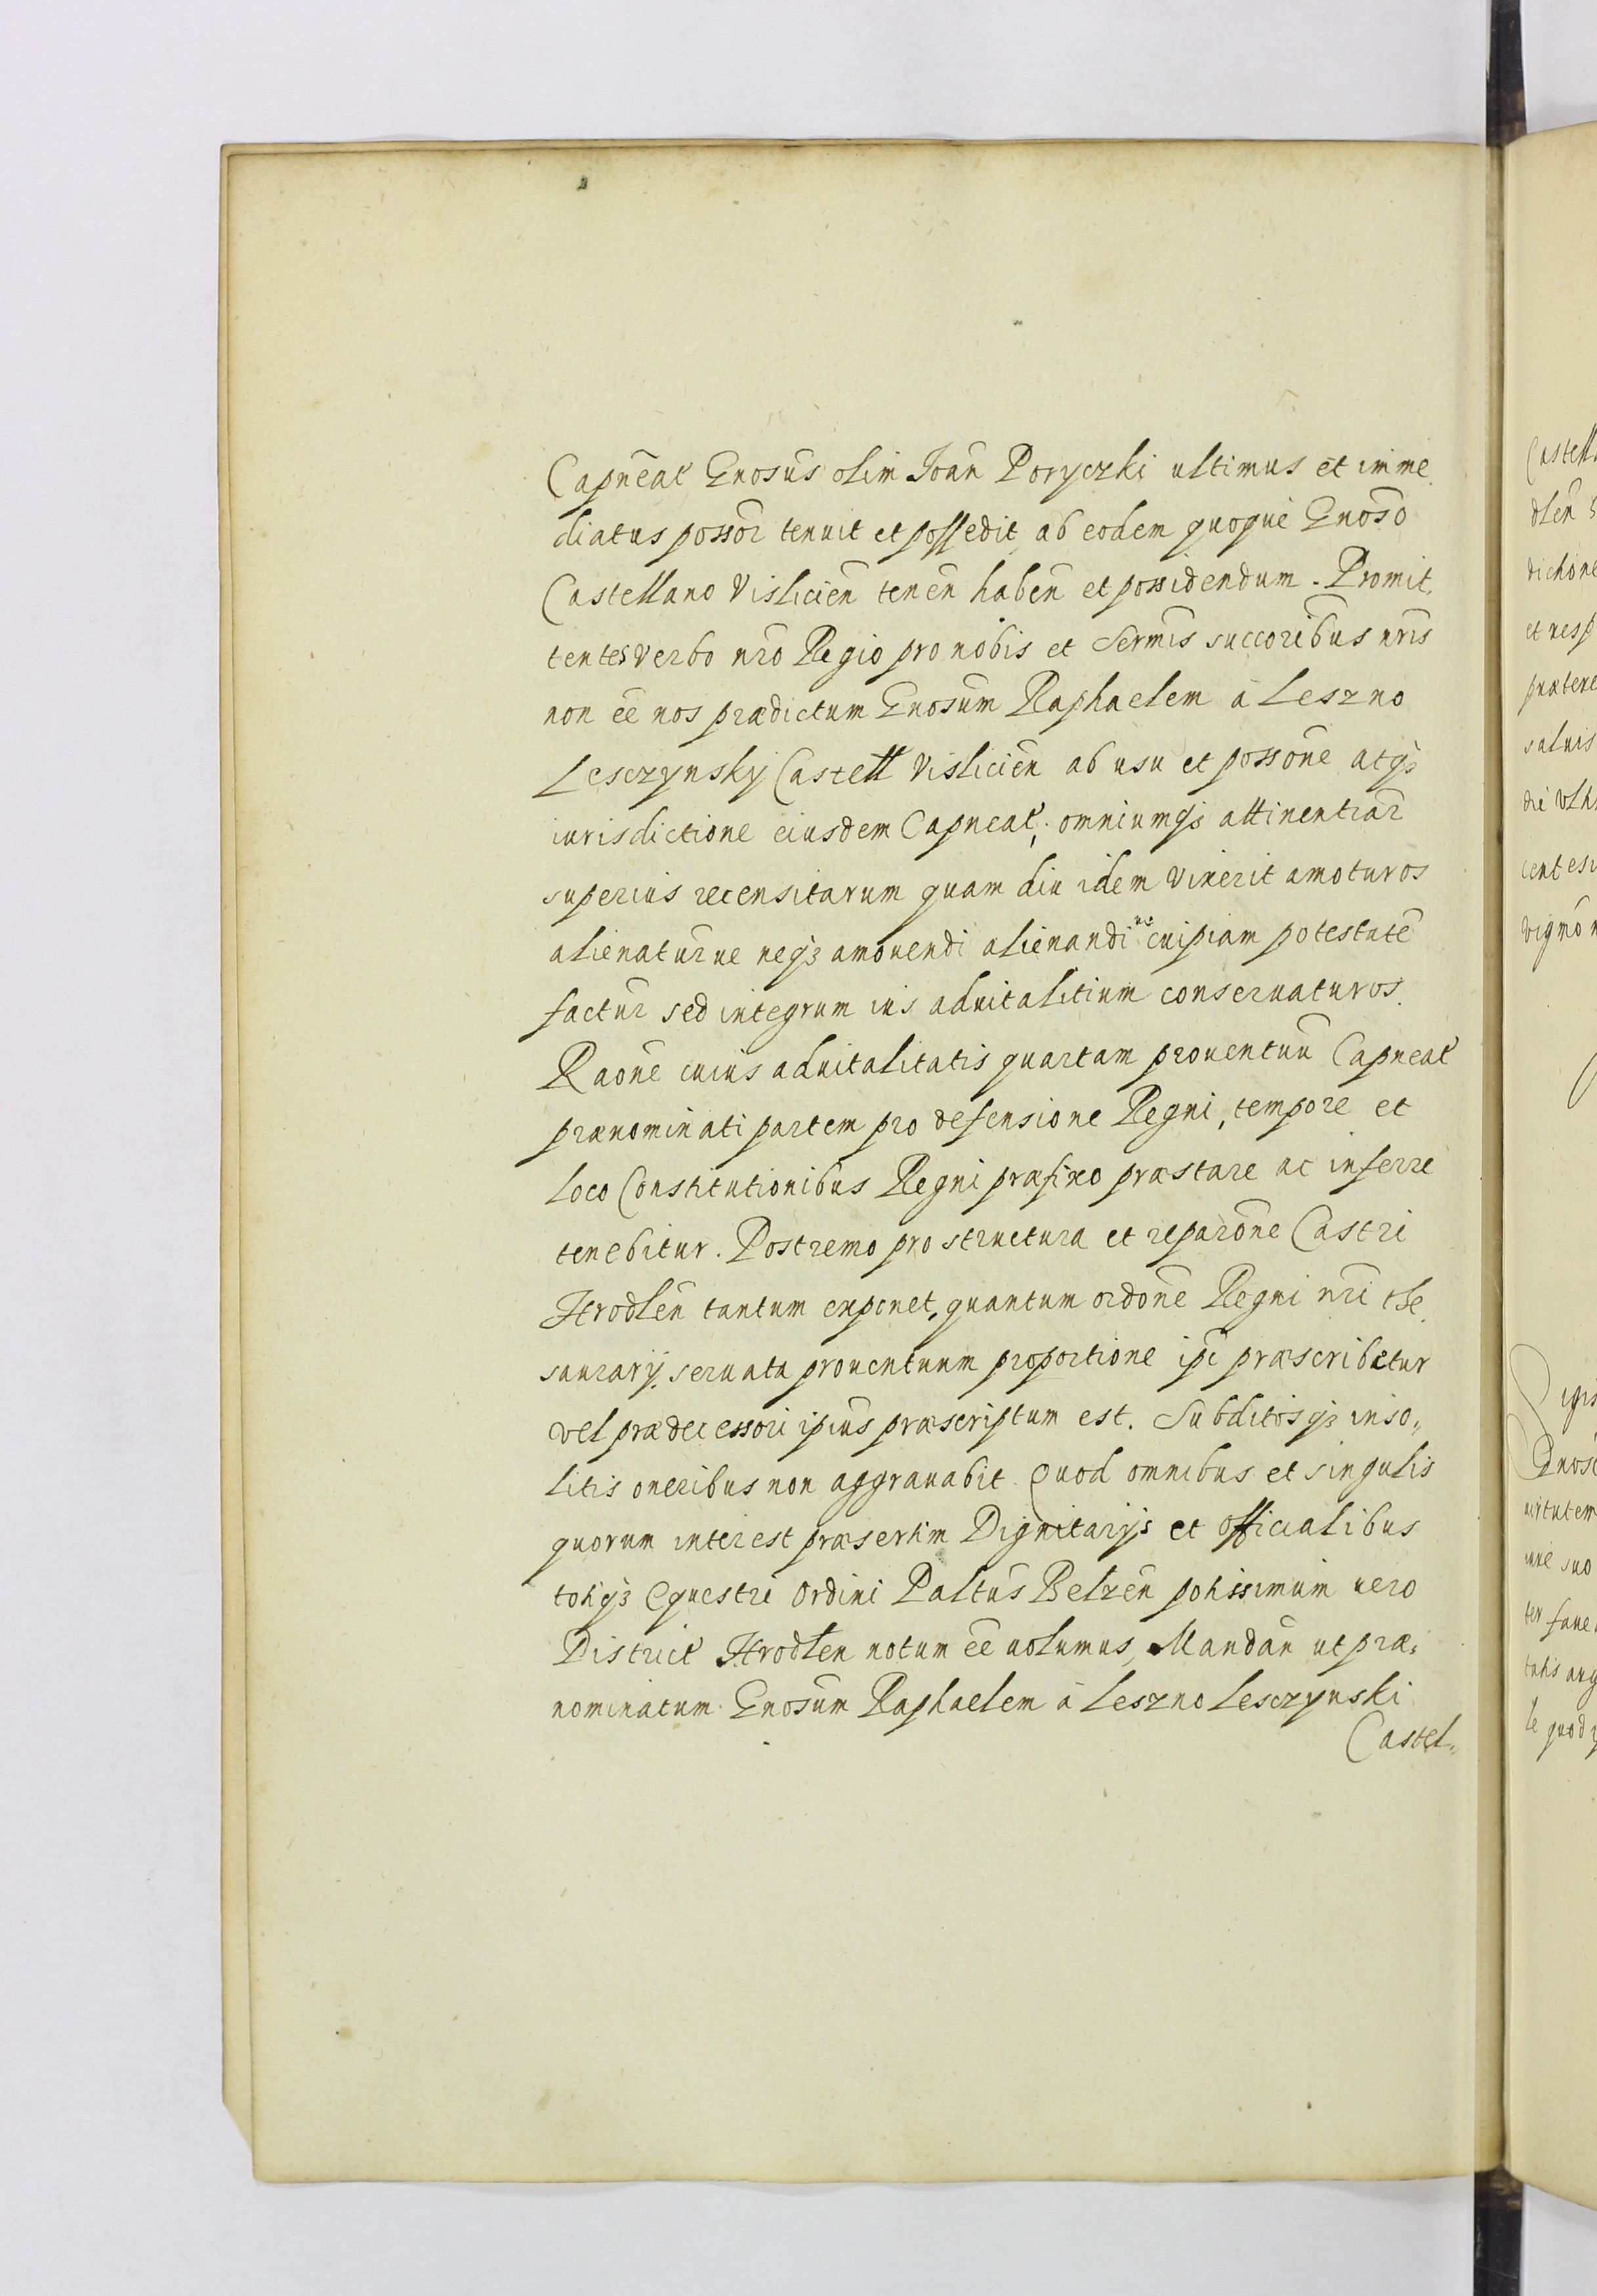 Capneat̃ Gnosus olim Ioan̄ Poryczki ultimus et imme
diatus possor tenuit et possedit ab eodem quoque Gnoso
Castellano Vislicien̄ tenen̄ haben̄ et possidendum. Promit
tentes verbo nr̄o Regio pro nobis et Serm̄is succoribus nr̄is
non ēē nos prædictum Gnosum Raphaelem à Leszno
Lesczynsky Castell Vislicien̄ ab usu et possōne atqꝫ
iurisdictione eiusdem Capneat̃, omniumqꝫ attinentiar̄
superius recensitarum quam diu idem vixerit amoturos
alienatur̄ue neqꝫ amouendi alienandi ue cuipiam potestatē
factur̄ sed integrum ius aduitalitium conseruaturos.
Raōne cuius aduitalitatis quartam prouentuū Capneat̃
prænominati partem pro defensione Regni, tempore et
loco Constitutionibus Regni præfixo præstare ac inferre
tenebitur. Postremo pro structura et reparōne Castri
Hrodlen̄ tantum exponet, quantum ordōne Regni nr̄i the
saurarij, seruata prouentuum proportione ip̄i præscribetur
vel prædecessori ip̄ius præscriptum est. Subditosqꝫ inso„
litis oneribus non aggrauabit Quod omnibus et singulis
quorum interest præsertim Dignitarijs et officialibus
totiqꝫ Equestri Ordini Paltūs Belzen̄ potissimum uero
District̃ Hrodlen notum ēē uolumus, Mandan̄ ut præ„
nominatum Gnosum Raphaelem à Leszno Lesczynski
Castel„